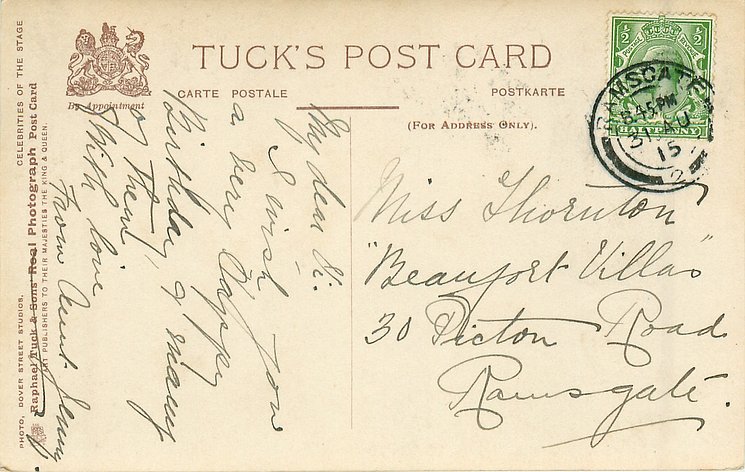 CELEBRITIES OF THE STAGE
Raphael Tuck & Sons' Real Photograph Post Card
ART PUBLISHERS TO THEIR MAJESTIES THE KING & QUEEN.
PHOTO, DOVER STREET STUDIOS,
By Appointment
TUCK'S POST CARD
CARTE POSTALE
POSTKARTE
(For Address Only).
½ ½
POSTAGE
HALFPENNY
RAMSGATE
8.45PM
31 AU
15
2
My dear
I wish you
a very Happy
Birthday & many
of them,
With love
From Aunt Jenny
Miss Thornton
"Beaufort Villas"
30 Picton Road
Ramsgate.